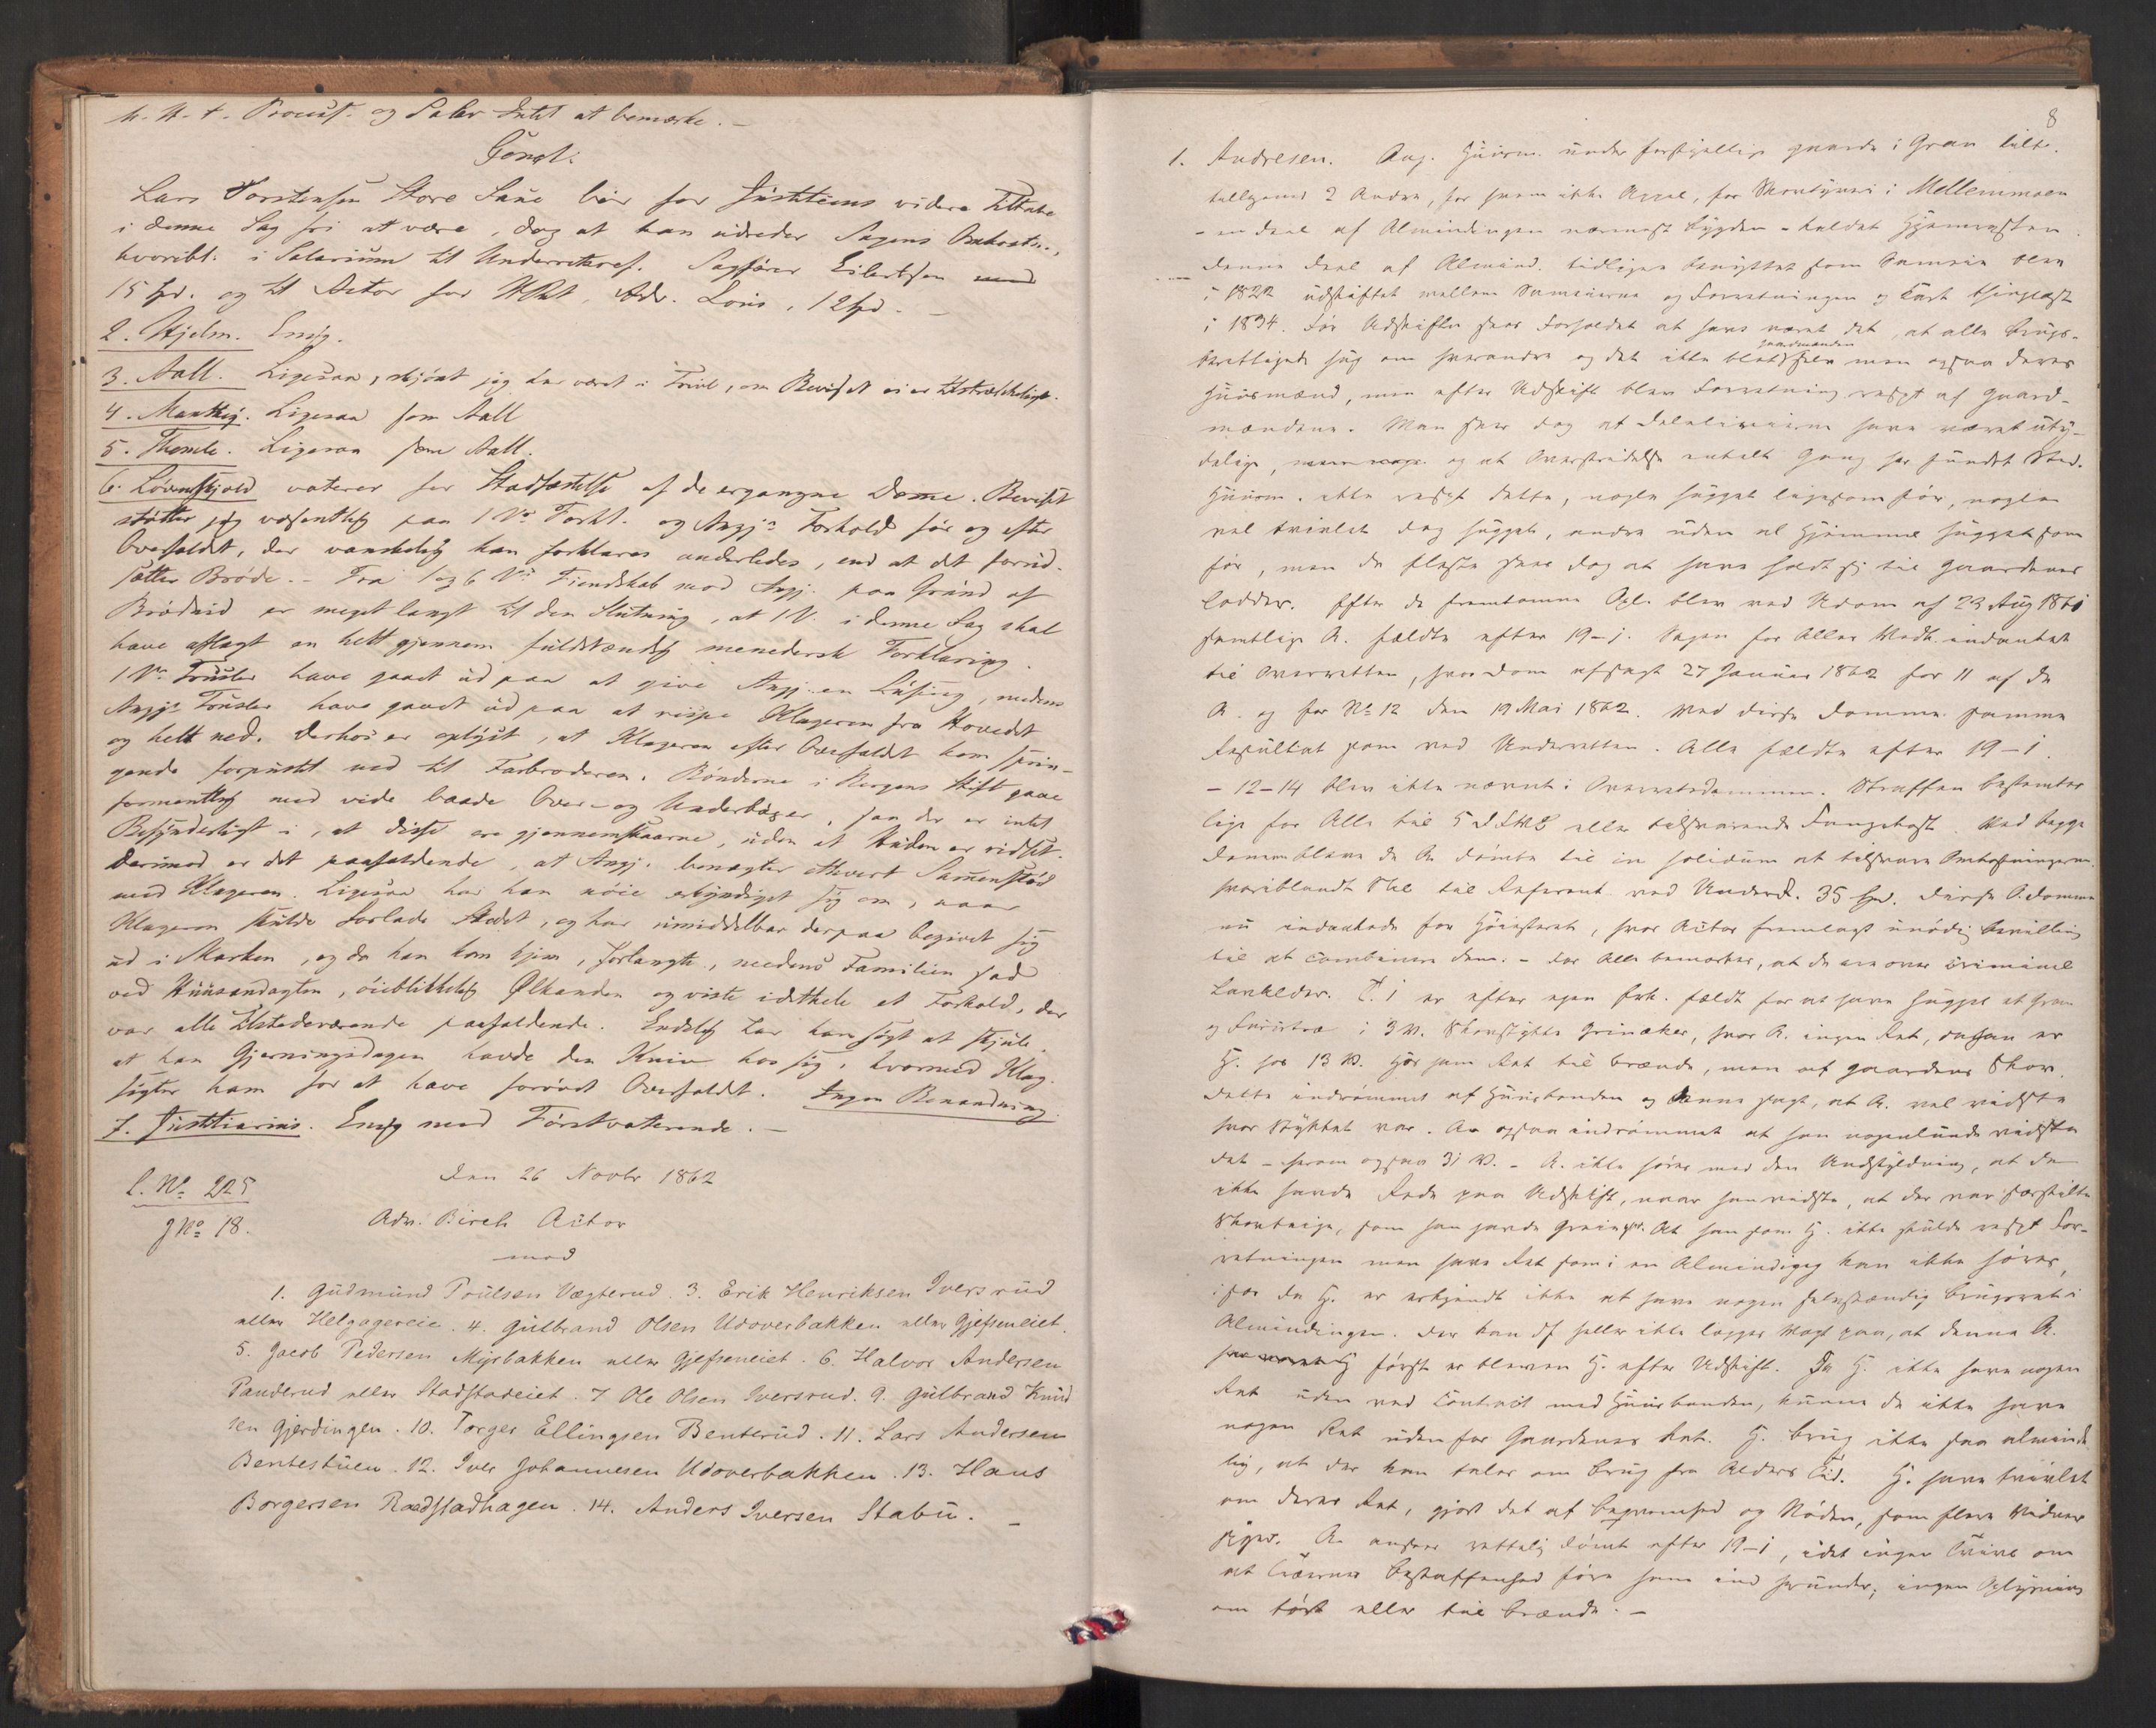 H. A. t. Procust. og Salær Intet at bemærke. –
Const:
Lars Torstensen Store Laue bør for Justitiens videre Tiltale
i denne Sag fri at være, dog at han udreder Sagens Omkostn.,
hvoribl. i Salarium til Underretssagf. Sagfører Eilertsen
15 Spd. og til Actor for HRet, Adv. Lous, 12 Spd. –
2. Hjelm. Enig.
3. Aall. Ligesaa, skjönt jeg har været i Tvivl, om Beviset ei er tilstrækkeligt.
4. Manthey. Ligesaa som Aall
5. Thomle. Ligesaa som Aall.
6. Løvenskjold voterer for Stadfæstelse af de ergangne Domme. Beviset
støtter sig væsentlig paa 1 Vs Forkl. og Angjs Forhold før og efter
Overfaldet, der vanskelig kan forklares anderledes, end at det forud-
sætter Brøde. – Fra 1 og 6 Vs Fiendskab mod Angj. paa Grund af
Brødnid er meget langt til den Slutning, at 1 V. i denne Sag skal
have aflagt en helt gjennem fuldstændig menedersk Forklaring.
1 Vs Trusler have gaaet ud paa at give Angj. en Lusing, medens
Angjs Trusler have gaaet ud paa at rispe Klageren fra Hovedet
og helt ned. Derhos er oplyst, at Klageren efter Overfaldet kom sprin-
gende forpustet ned til Farbroderen. Bønderne i Bergens Stift gaae
formentlig med vide baade Over- og Underbuxer, saa der er intet
Besynderligt i, at disse ere gjennemskaarne, uden at Huden er ridset.
Derimod er det paafaldende, at Angj. benægter ethvert Sammenstød
med Klageren. Ligesaa har han nøie erkyndiget sig om, naar
Klageren skulde forlade Stedet, og har umiddelbar derpaa begivet sig
ud i Marken, og da han kom hjem, forlangte, medens Familien sad
ved Huusandagten, øieblikkelig Ølkanden og viste idethele et Forhold, der
var alle Tilstedeværende paafaldende. Endelig har han søgt at skjule
at han Gjerningsdagen havde den Kniv hos sig, hvormed Klag.
sigter ham for at have forøvet Overfaldet. Ingen Benaadning.
7. Justitiarius. Enig med Førstvoterende. –
L. No 225
g No 18.
Den 26 Novbr 1862
Adv. Birch Actor
mod
1. Gudmund Poulsen Vægterud. 3. Erik Henriksen Iversrud
eller Helgagereie. 4. Gulbrand Olsen Udoverbakken eller Gjefseneiet.
5. Jacob Pedersen Myrbakken eller Gjefseneiet. 6. Halvor Andersen
Panderud eller Stadstadeiet. 7 Ole Olsen Iversrud. 9. Gulbrand Knud
sen Gjerdingen. 10. Torger Ellingsen Benterud. 11. Lars Andersen
Bentestuen. 12. Iver Johannesen Udoverbakken. 13. Hans
Borgersen Raadstadhagen. 14. Anders Iversen Stabu. –
8
1. Andresen. Ang. Huusm. under forskjellige gaarde i Gran tilt.
tilligemed 2 Andre, for hvem ikke Appel, for Skovtyveri i Mellemmoen
– en deel af Almindingen nærmest Bygden – kaldet Hjemmesten.
Denne deel af Almind. tidligere benyttet som Sameie blev
i 1822 udskiftet mellem Sameierne og Forretningen og Kart thinglæst
i 1834. Før Udskiften synes Forholdet at have været det, at alle brugs-
berettigede hug om hverandre og det ikke blot gaardmanden selv men ogsaa deres
Huusmænd, men efter Udskift blev Forretning resp:t af Gaard-
mændene. Man seer dog at Delelinierne have været uty-
delige, og at Overtrædelse enkelt Gang har fundet Sted.
Huusm. ikke resp:t dette, nogle hugget ligesom før, nogle
vel tvivlet dog hugget, andre uden al Hjemmel hugget som
før, men de fleste synes dog at have holdt sig til Gaardenes
Lodder. Efter de fremkomne Opl. blev ved Udom af 23 Aug 1861
samtlige A. fældte efter 19–1. Sagen for Alles Vedk. indanket
til Overretten, hvor Dom afsagt 27 Januar 1862 for 11 af de
A. og for No 12 den 19 Mai 1862. Ved disse Domme samme
Resultat som ved Underretten. Alle fældte efter 19–1.
– 12–14 blev ikke nævnt i Overretsdommen. Straffen bestemtes
lige for Alle til 5 D. F. V&B eller tilsvarende Fangekost. Ved begge
Domme bleve de A. dømte til in solidum at tilsvare Omkostningerne
hvoriblandt Sal. til Referent ved Underr. 35 Spd. Disse 2 Domme
nu indankede for Høiesteret, hvor Actor fremlagt unødig Bevilling
til at combinere dem. – For Alle bemærkes, at de ere over criminel
Lavalder. T. 1 er efter egen Erk. fældt for at have hugget et Gran
og Furutræ i 3 V. Skovstykke Grinaker, hvor A. ingen Ret, da han er
H. hos 13 V. Hos ham Ret til Brænde, men af Gaardens Skov.
Dette indrømmet af Huusbonden og denne sagt, at A. vel vidste
hvor Stykket var. A. ogsaa indrømmet at han nogenlunde vidste
det – hvorom ogsaa 31 V. – A. ikke høres med den Undskyldning, at de
ikke havde Rede paa Udskift, naar han vidste, at der var særskilte
Skovteige, som han havde . At han som H. ikke skulde resp:t For-
retningen men have Ret som i en Alminding kan ikke høres,
ifor da H. er erkjendt ikke at have nogen selvstændig Brugsret i
Almindingen. Der kan ikke heller ikke lægges Vægt paa, at denne A.
først er bleven H. efter Udskift. Da H. ikke have nogen
Ret uden ved Contract med Huusbonden, kunne de ikke have
nogen Ret udenfor Gaardenes Ret. H. Brug ikke saa alminde
lig, at der kan tales om Brug fra Alders Tid. H. have tvivlet
om deres Ret, gjort det af Bequemhed og Nøden, som flere Vidner
siger. A. ansees rettelig dømt efter 19–1, idet ingen Tvivl om
at Træernes Beskaffenhed føre ham ind herunder; ingen Oplysning
om tørt eller til Brænde. –